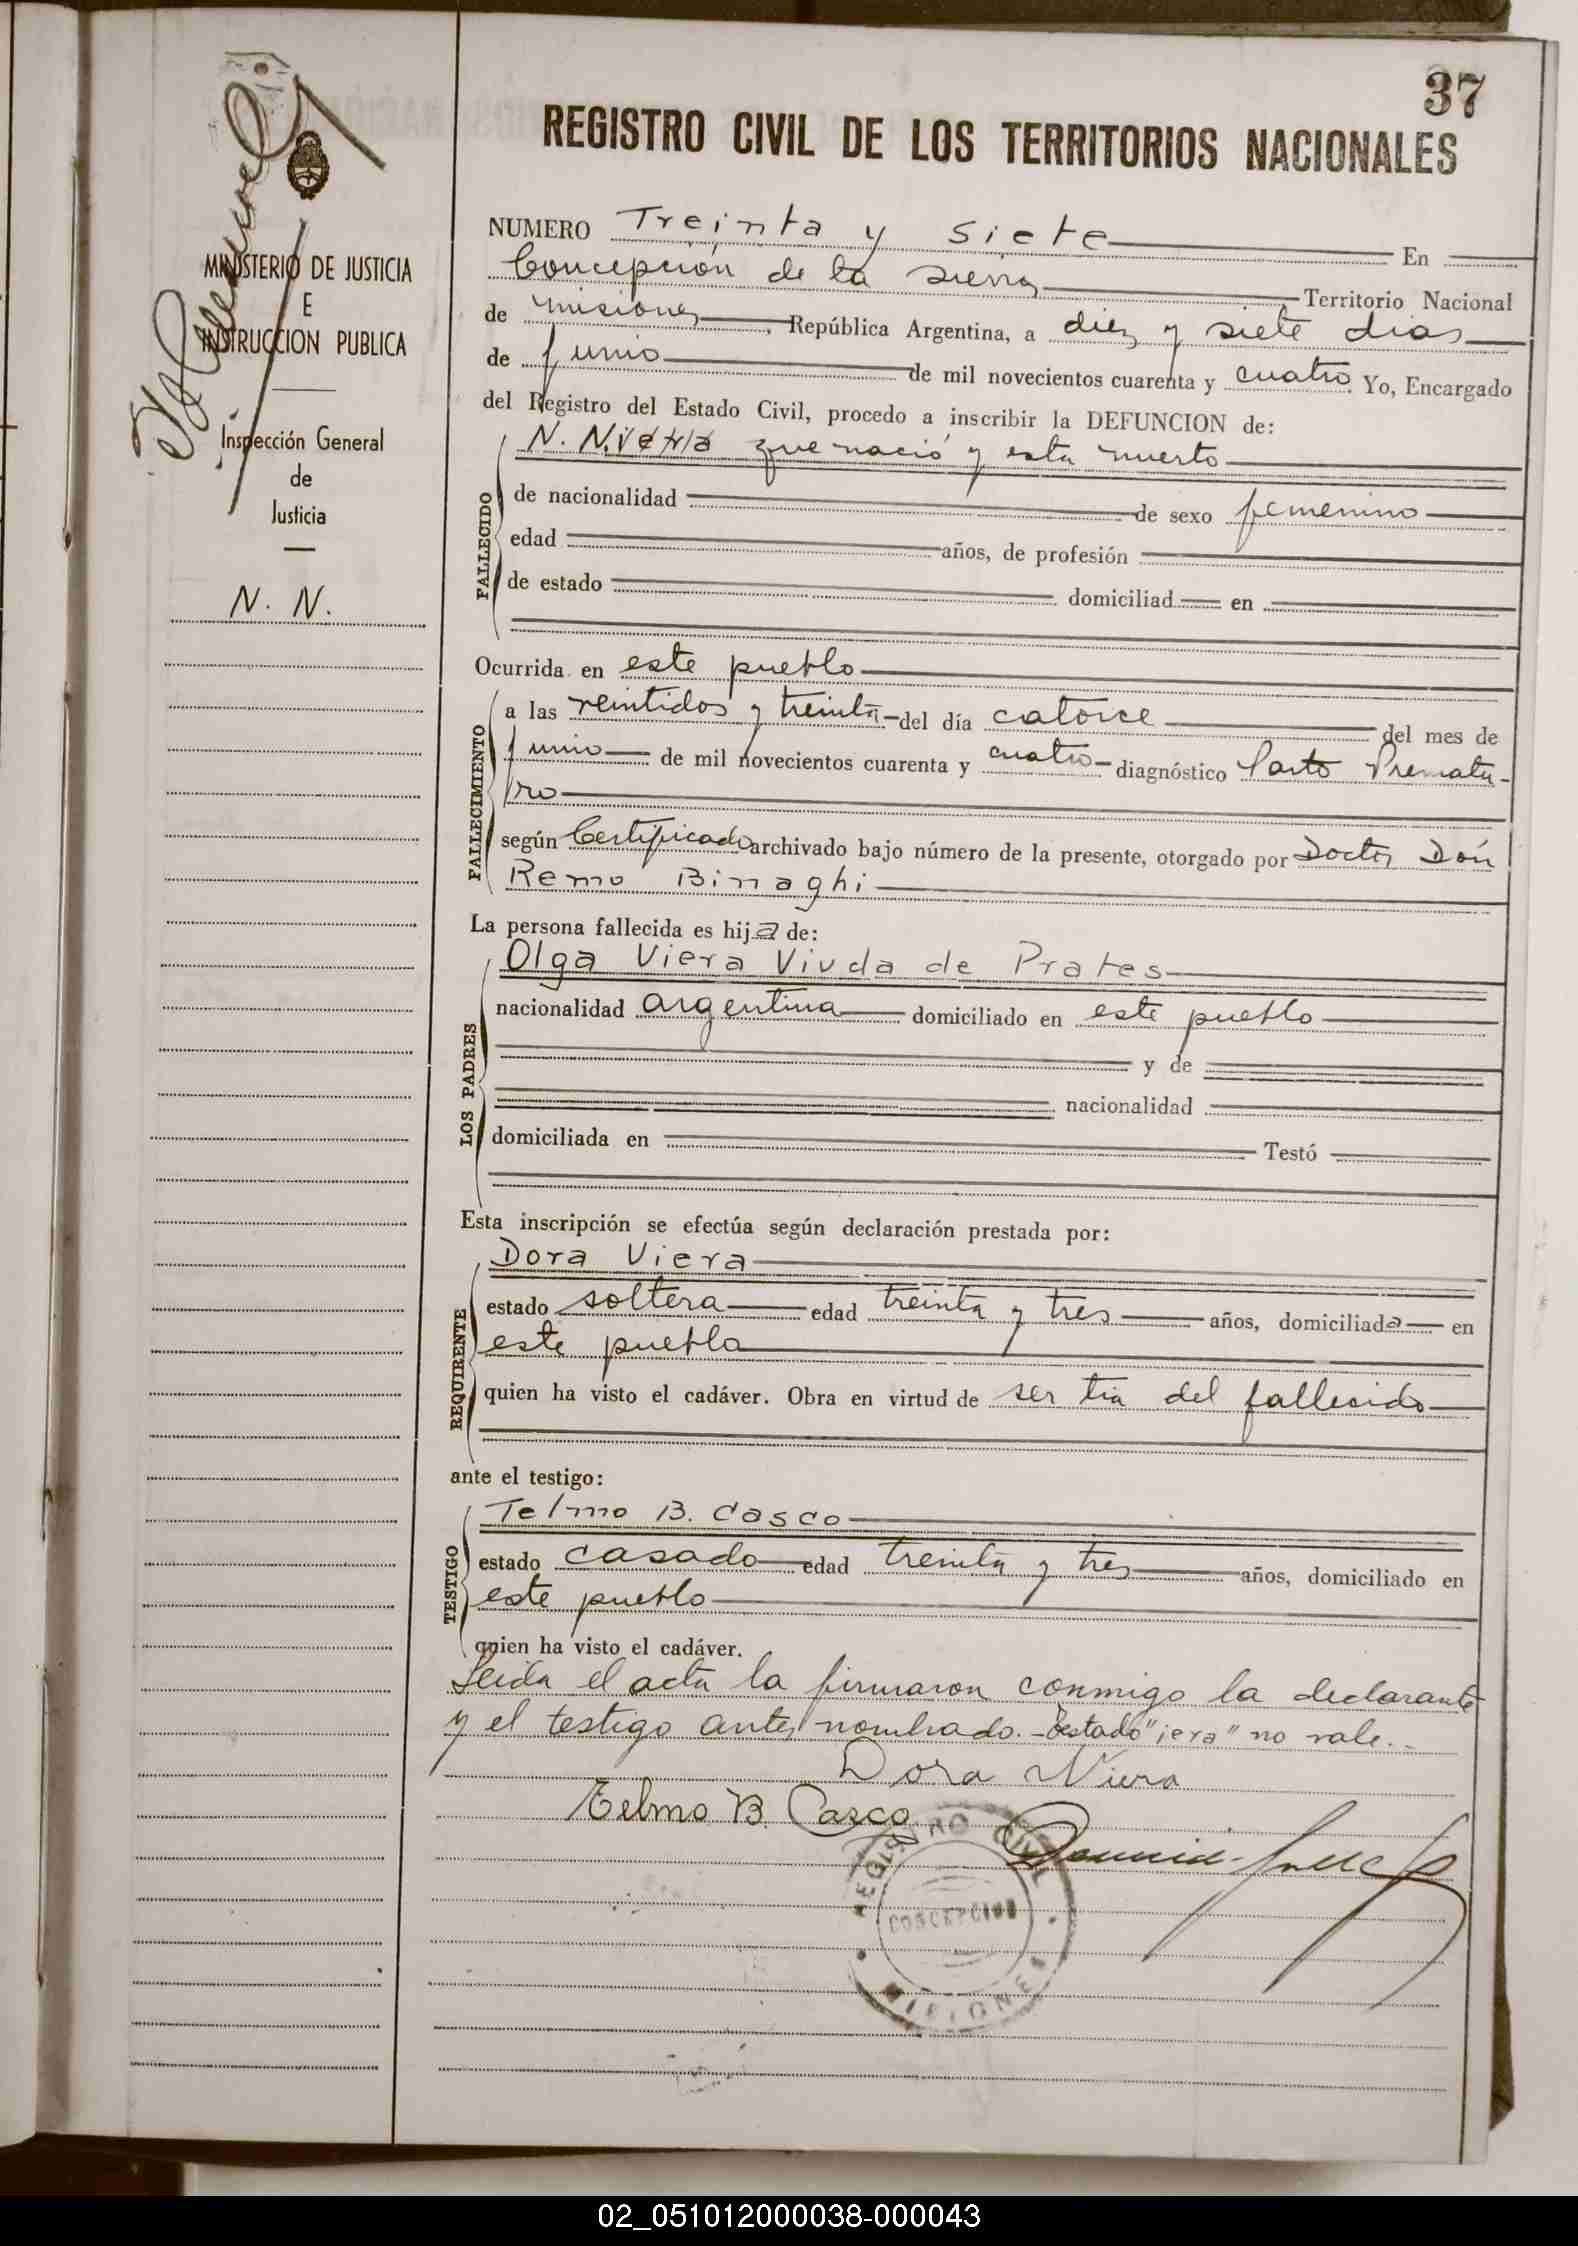 37
REGISTRO CIVIL DE LOS TERRITORIOS NACIONALES
MINISTERIO DE JUSTICIA
E
INSTRUCCION PUBLICA
Inspección General
de
Justicia
N. N.
NUMERO Treinta y siete En
Concepción de la Sierra Territorio Nacional
de Misiones, República Argentina, a diez y siete días
de junio de mil novecientos cuarenta y cuatro Yo, Encargado
del Registro del Estado Civil, procedo a inscribir la DEFUNCION de:
N. N. Viera que nació y esta muerto
FALLECIDO
de nacionalidad de sexo femenino
edad años, de profesión
de estado domiciliad en
Ocurrida en este pueblo
FALLECIMIENTO
a las veintidos y treinta del día catorce del mes de
junio de mil novecientos cuarenta y cuatro diagnóstico Parto Prematu-
ro
según Certificado archivado bajo número de la presente, otorgado por Doctor Don
Remo Binaghi
La persona fallecida es hija de:
LOS PADRES
Olga Viera Viuda de Prates
nacionalidad argentina domiciliado en este pueblo
y de
nacionalidad
domiciliada en Testó
Esta inscripción se efectúa según declaración prestada por:
REQUIRENTE
Dora Viera
estado soltera edad treinta y tres años, domiciliada en
este pueblo
quien ha visto el cadáver. Obra en virtud de ser tia del fallecido
ante el testigo:
TESTIGO
Telmo B. Casco
estado casado edad treinta y tres años, domiciliado en
este pueblo
quien ha visto el cadáver.
Leida el acta la firmaron conmigo la declarante
y el testigo antes nombrado.-Testado "iera" no vale.-
Dora Viera
Telmo B. Casco
REGISTRO CIVIL
CONCEPCION
MISIONES
02_051012000038-000043